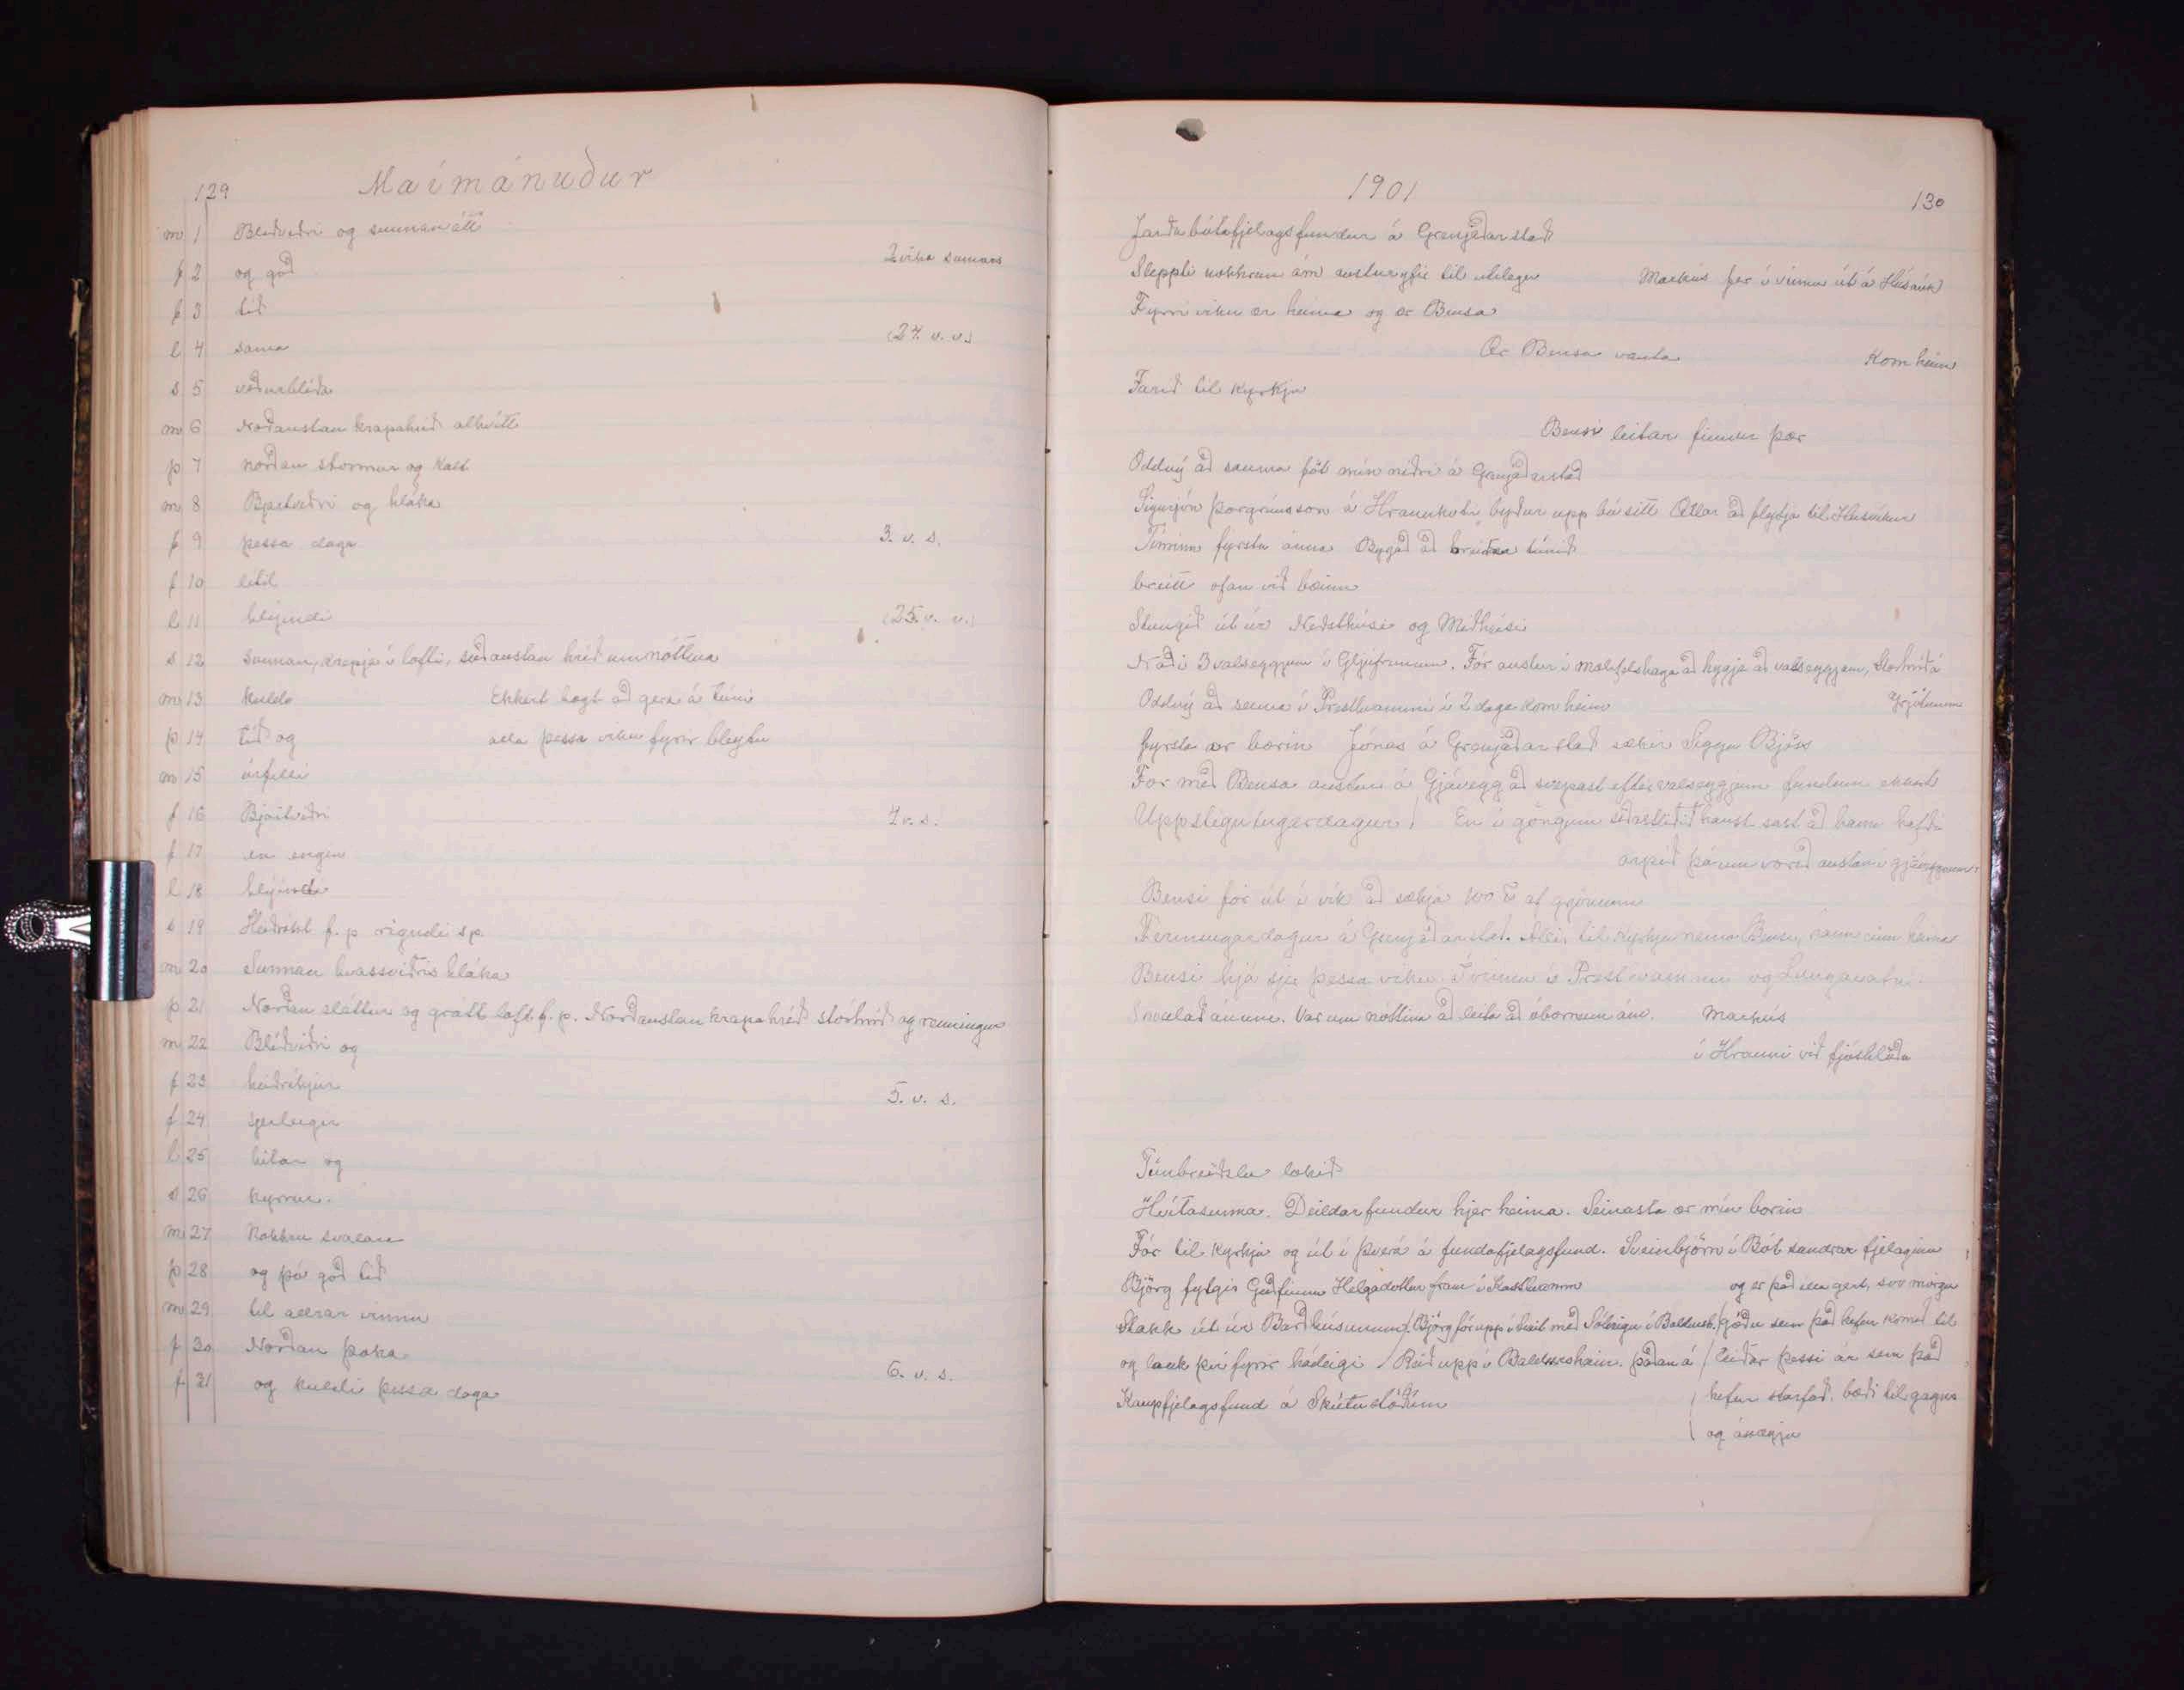 129
Maímánuður
m 1 Blíðviðri og sunnanátt
f 2 og góð 2 vika sumars
f 3 tíð
l 4 sama (24. v. v.)
s 5 veðurblíða
m 6 Norðaustan krapahríð alhvítt
þ 7 norðan stormur og kalt
m 8 Bjartviðri og hláka
f 9 þessa daga 3. v. s.
f 10 lítil
l 11 hlýindi (25. v. v.)
s 12 Sunnan, krepja í lofti, suðaustan hríð um nóttina
m 13 kulda Ekkert hægt að gera á túni
þ 14 tíð og alla þessa viku fyrir bleytu
m 15 úrfelli
f 16 Bjartviðri 4 v. s.
f 17 en engin
l 18 hlýindi
s 19 Heiðríkt f. p rigndi sp
m 20 Sunnan hvassviðris hláka
þ 21 Norðan sléttur og grátt loft f. p. Norðaustan krapahríð stórhríð og renningur
m 22 Blíðviðri og
f 23 heiðríkjur 5. v. s.
f 24 sjerlegir
l 25 hitar og
s 26 kyrrur.
m 27 Nokkru svalara
þ 28 og þó góð tíð
m 29 til allrar vinnu
f 30 Norðan þoka
f 31 og kuldi þessa daga 6. v. s.
1901
130
Jarðabótafjelagsfundur á Grenjaðarstað
Sleppti nokkrum ám austur yfir til útilegu Markús fer í vinnu út á Húsavík
Fyrri viku ær heima og ær Bensa
Ær Bensa vanta Kom heim
Farið til kyrkju
Bensi leitar finnur þær
Oddný að sauma föt mín niðri á Grenjaðarstað
Sigurjón Þorgrímsson á Hraunkoti byður upp bú sitt Ætlar að flytja til Húsavíkur
Tíminn fyrsta ánna Bygað að breiða túnið
breitt ofan við bæinn
Stungið út úr Neðsthúsi og Miðhúsi
Náði 3 valseggjum í Gljúfrunum. Fór austur í mosfelshaga að hyggja að valseggjum, Stórhríð á
Oddný að sauma í Presthvammi í 2 daga kom heim Grjótunum
fyrsta ær borin Jónas á Grenjaðarstað sækir Siggu Björs
For með Bensa austur á Gjávegg að svipast eftir valseggjum fundum ekkert
Uppstigningardagur! En í göngum síðastliðið haust sást að hann hafði
orpið þá um vorið austan í gjánni
Bensi fór út í vík að sækja 100 ℔ af
Fermingardagur á Grenjaðarstað. Allir til kyrkju nema Bensi, einn heima
Bensi hjá sjer þessa viku. Í vinnu í Presthvammi og Langavatni.
Smalað ánum. Var um nóttina að leita að óbornum ám. Markús
í Hrauni við fjóshlöðu
Túnbreiðslu lokið
Hvítasunna. Deildarfundur hjer heima. Seinasta ær mín borin
Fór til kyrkju og út í Þverá á fundafjelagsfund. Sveinbjörn í Bót sundrar fjelaginu
Björg fylgir Guðfinnu Helgadóttur fram í Kasthvamm og er það illa gert, svo mörgu
Stakk út úr Barðhúsunum Björg fór upp í Sveit með Sólveigu í Baldursh. góðu sem það hefur komið til
og lauk því fyrir hádeigi Reið upp í Baldursheim. þaðan á leiðar þessi ár sem það
Kaupfjelagsfund á Skútustöðum hefur starfað. bæði til gagns
og ánægju